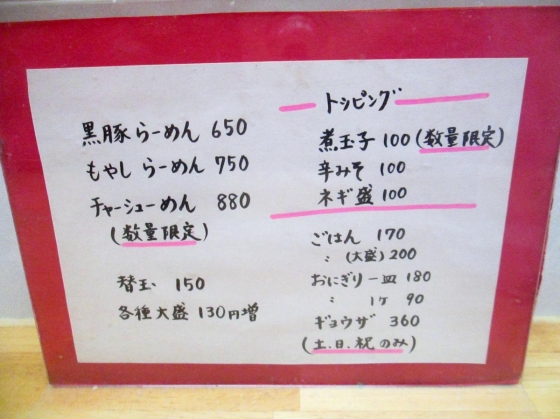 黒豚らーめん 650
もやしらーめん 750
チャーシューめん 880
(数量限定)
替玉 150
各種大盛 130円増
トッピング
煮玉子 100 (数量限定)
辛みそ 100
ネギ盛 100
ごはん 170
〃 (大盛) 200
おにぎり一皿 180
〃 1ヶ 90
ギョウザ 360
(土、日、祝のみ)